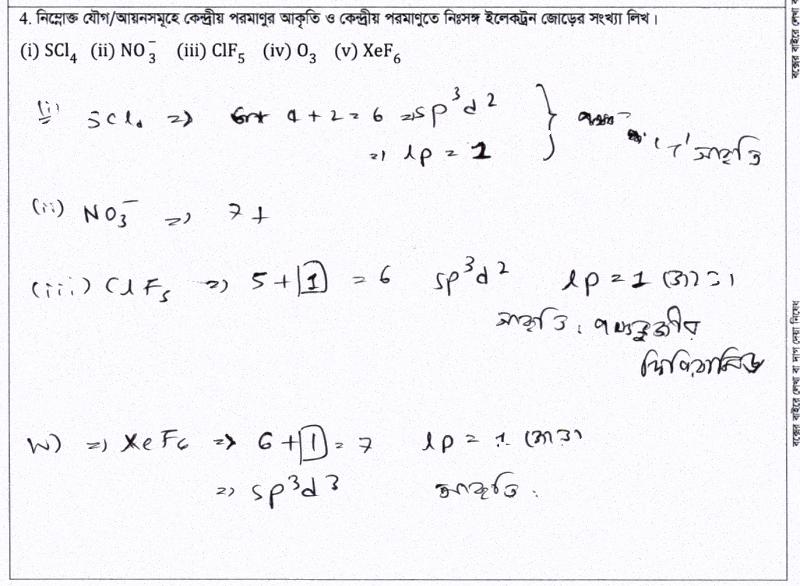 4. নিম্নোক্ত যৌগ/আয়নসমূহে কেন্দ্রীয় পরমাণুর আকৃতি ও কেন্দ্রীয় পরমাণুতে নিঃসঙ্গ ইলেকট্রন জোড়ের সংখ্যা লিখ।
(i) SCl₄ (ii) NO₃⁻ (iii) ClF₅ (iv) O₃ (v) XeF₆
(i) SCl₄ ⇒ 4 + 2 = 6 ⇒ sp³d²
⇒ lp = 1
'T' আকৃতি
(ii) NO₃⁻ ⇒ 7 +
(iii) ClF₅ ⇒ 5 + 1 = 6 sp³d² lp = 1 জোড়া
আকৃতি : পঞ্চভুজীয়
পিরামিড
⇒ XeF₆ ⇒ 6 + 1 = 7 lp = 1
⇒ sp³d³ আকৃতি :
বক্সের বাইরে লেখা বা দাগ দেয়া নিষেধ